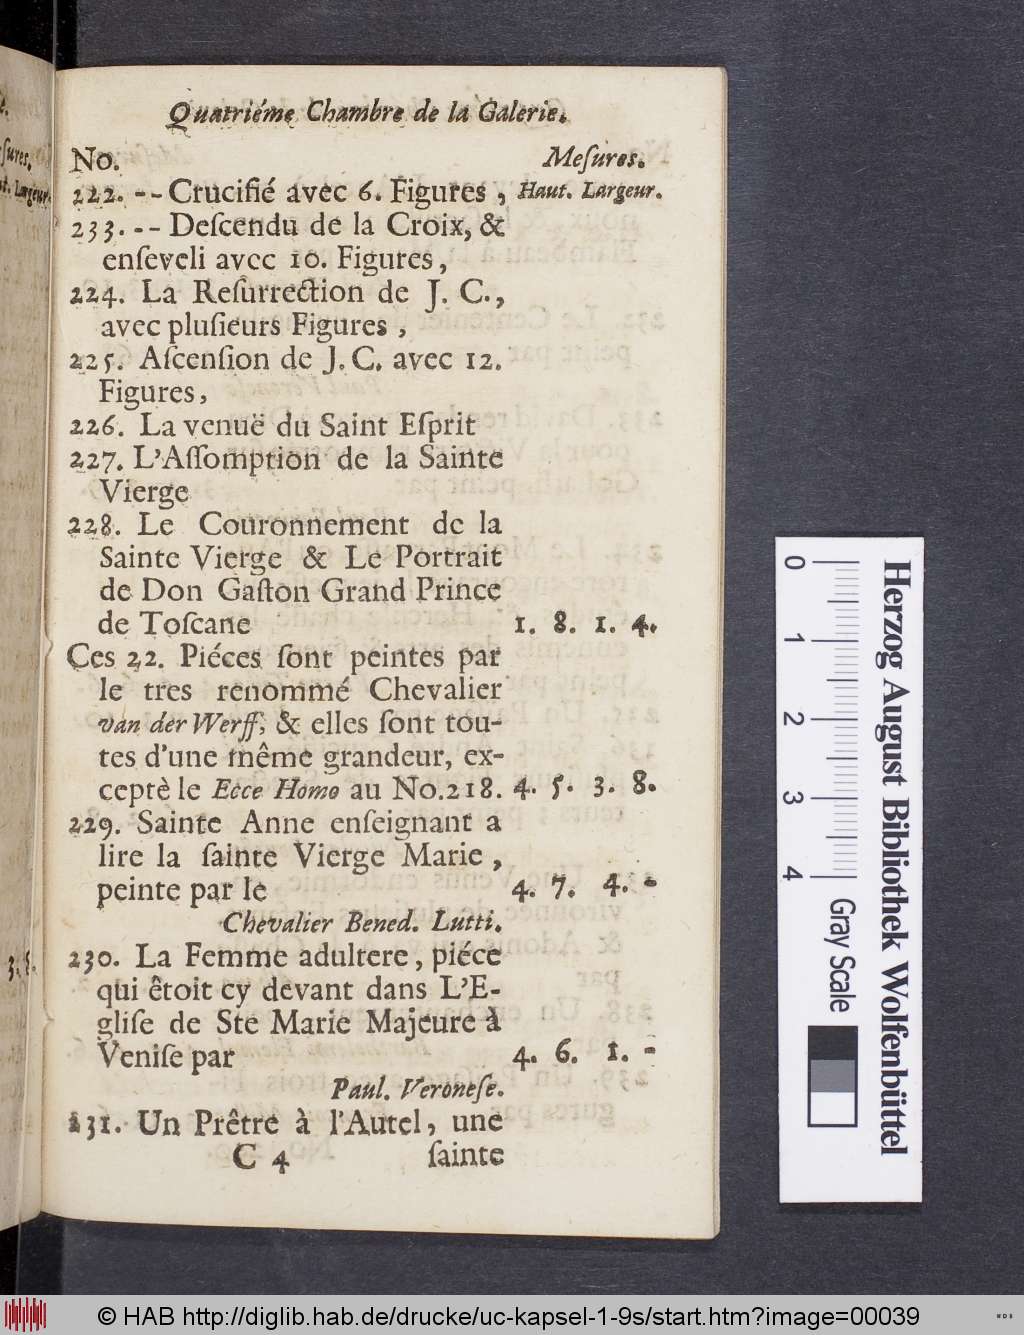 Quatriéme Chambre de la Galerie.
No. Meſures.
222. -- Crucifié avec 6. Figures , Haut. Largeur.
233. -- Deſcendu de la Croix, &
enſeveli avec 10. Figures,
224. La Reſurrection de J. C.,
avec pluſieurs Figures ,
225. Aſcenſion de J. C. avec 12.
Figures,
226. La venuë du Saint Eſprit
227. L'Aſſomption de la Sainte
Vierge
228. Le Couronnement de la
Sainte Vierge & Le Portrait
de Don Gaſton Grand Prince
de Toſcane 1. 8. 1. 4.
Ces 22. Piéces ſont peintes par
le tres renommé Chevalier
van der Werff, & elles ſont tou-
tes d'une même grandeur, ex-
ceptè le Ecce Homo au No.218. 4. 5. 3. 8.
229. Sainte Anne enſeignant a
lire la ſainte Vierge Marie ,
peinte par le 4. 7. 4. -
Chevalier Bened. Lutti.
230. La Femme adultere, piéce
qui êtoit cy devant dans L'E-
gliſe de Ste Marie Majeure à
Veniſe par 4. 6. 1. -
Paul. Veroneſe.
231. Un Prêtre à l'Autel, une
C 4 ſainte
3. 5.
0 1 2 3 4 Gray Scale
Herzog August Bibliothek Wolfenbüttel
© HAB http://diglib.hab.de/drucke/uc-kapsel-1-9s/start.htm?image=00039